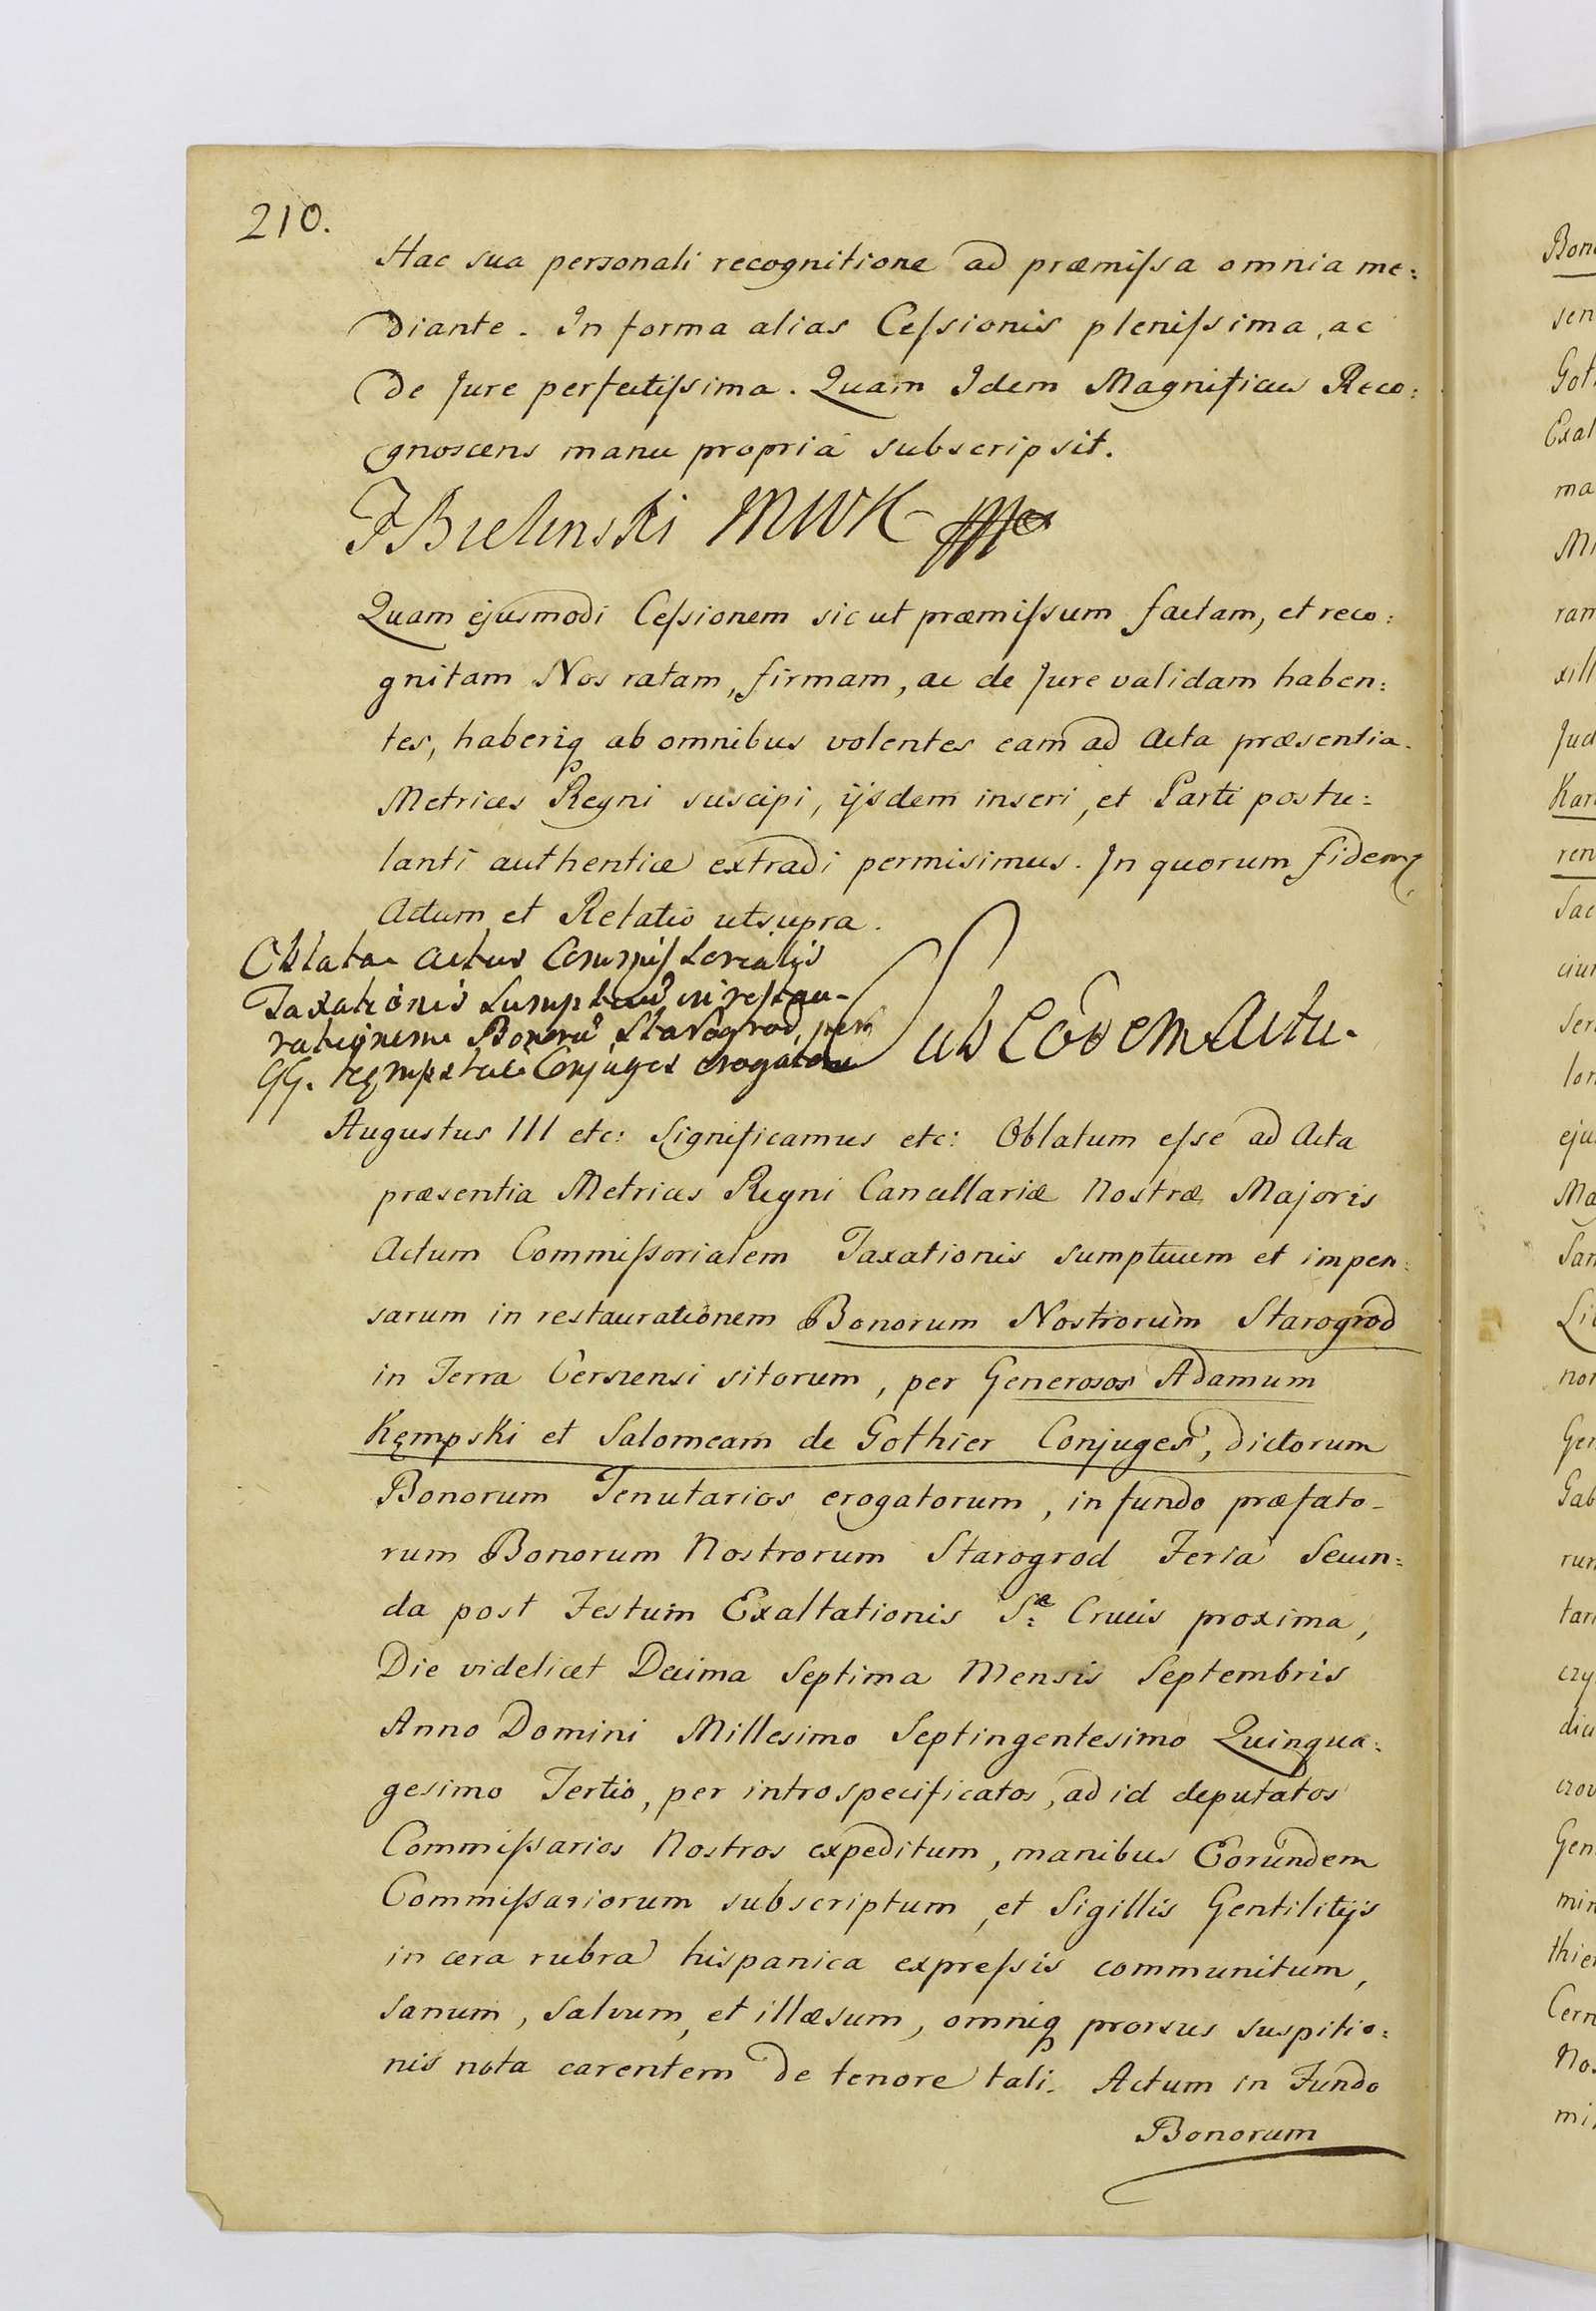 210.
Hac sua personali recognitione ad præmiſsa omnia me:
diante. In forma alias Ceſsionis pleniſsima, ac
de Jure perfectiſsima. Quam Idem Magnificus Reco:
gnoscens manu propriâ subscripsit.
FBielinski MWK
Quam ejusmodi Ceſsionem sicut præmiſsum factam, et reco:
gnitam Nos ratam, firmam, ac de Jure validam haben:
tes, haberiq ab omnibus volentes eam ad Acta præsentia
Metrices Regni suscipi, ijsdem inseri, et Parti postu:
lanti authentice extradi permisimus. In quorum fidem
Actum et Relatio utsupra.
Oblata Actus Commiſsorialis
Taxationis Sumptuũ in reſtau-
rationem Bonorũ Starogrod, per
GG. Kęmpskie Conjuges erogatorũ
Sub Eodem Actu.
Augustus III etc: Significamus etc: Oblatum eſse ad Acta
præsentia Metrices Regni Cancellariæ Nostræ Majoris
Actum Commiſsorialem Taxationis sumptuum et impen:
sarum in restaurationem Bonorum Nostrorum Starogrod
in Terra Cersnensi sitorum, per Generosos Adamum
Kęmpski et Salomeam de Gothier Conjuges, dictorum
Bonorum Tenutarios erogatorum, in fundo præfato-
rum Bonorum Nostrorum Starogrod Feria Secun:
da post Festum Exaltationis S:æ Crucis proxima,
Die videlicet Decima Septima Mensis Septembris
Anno Domini Millesimo Septingentesimo Quinqua:
gesimo Tertio, per introspecificatos, ad id deputatos
Commiſsarios Nostros expeditum, manibus Eorundem
Commiſsariorum subscriptum, et Sigillis Gentilitijs
in cera rubra hispanica expreſsis communitum,
sanum, salvum, et illæsum, omniq prorsus suspitio:
nis nota carentem de tenore tali. Actum in Fundo
Bonorum